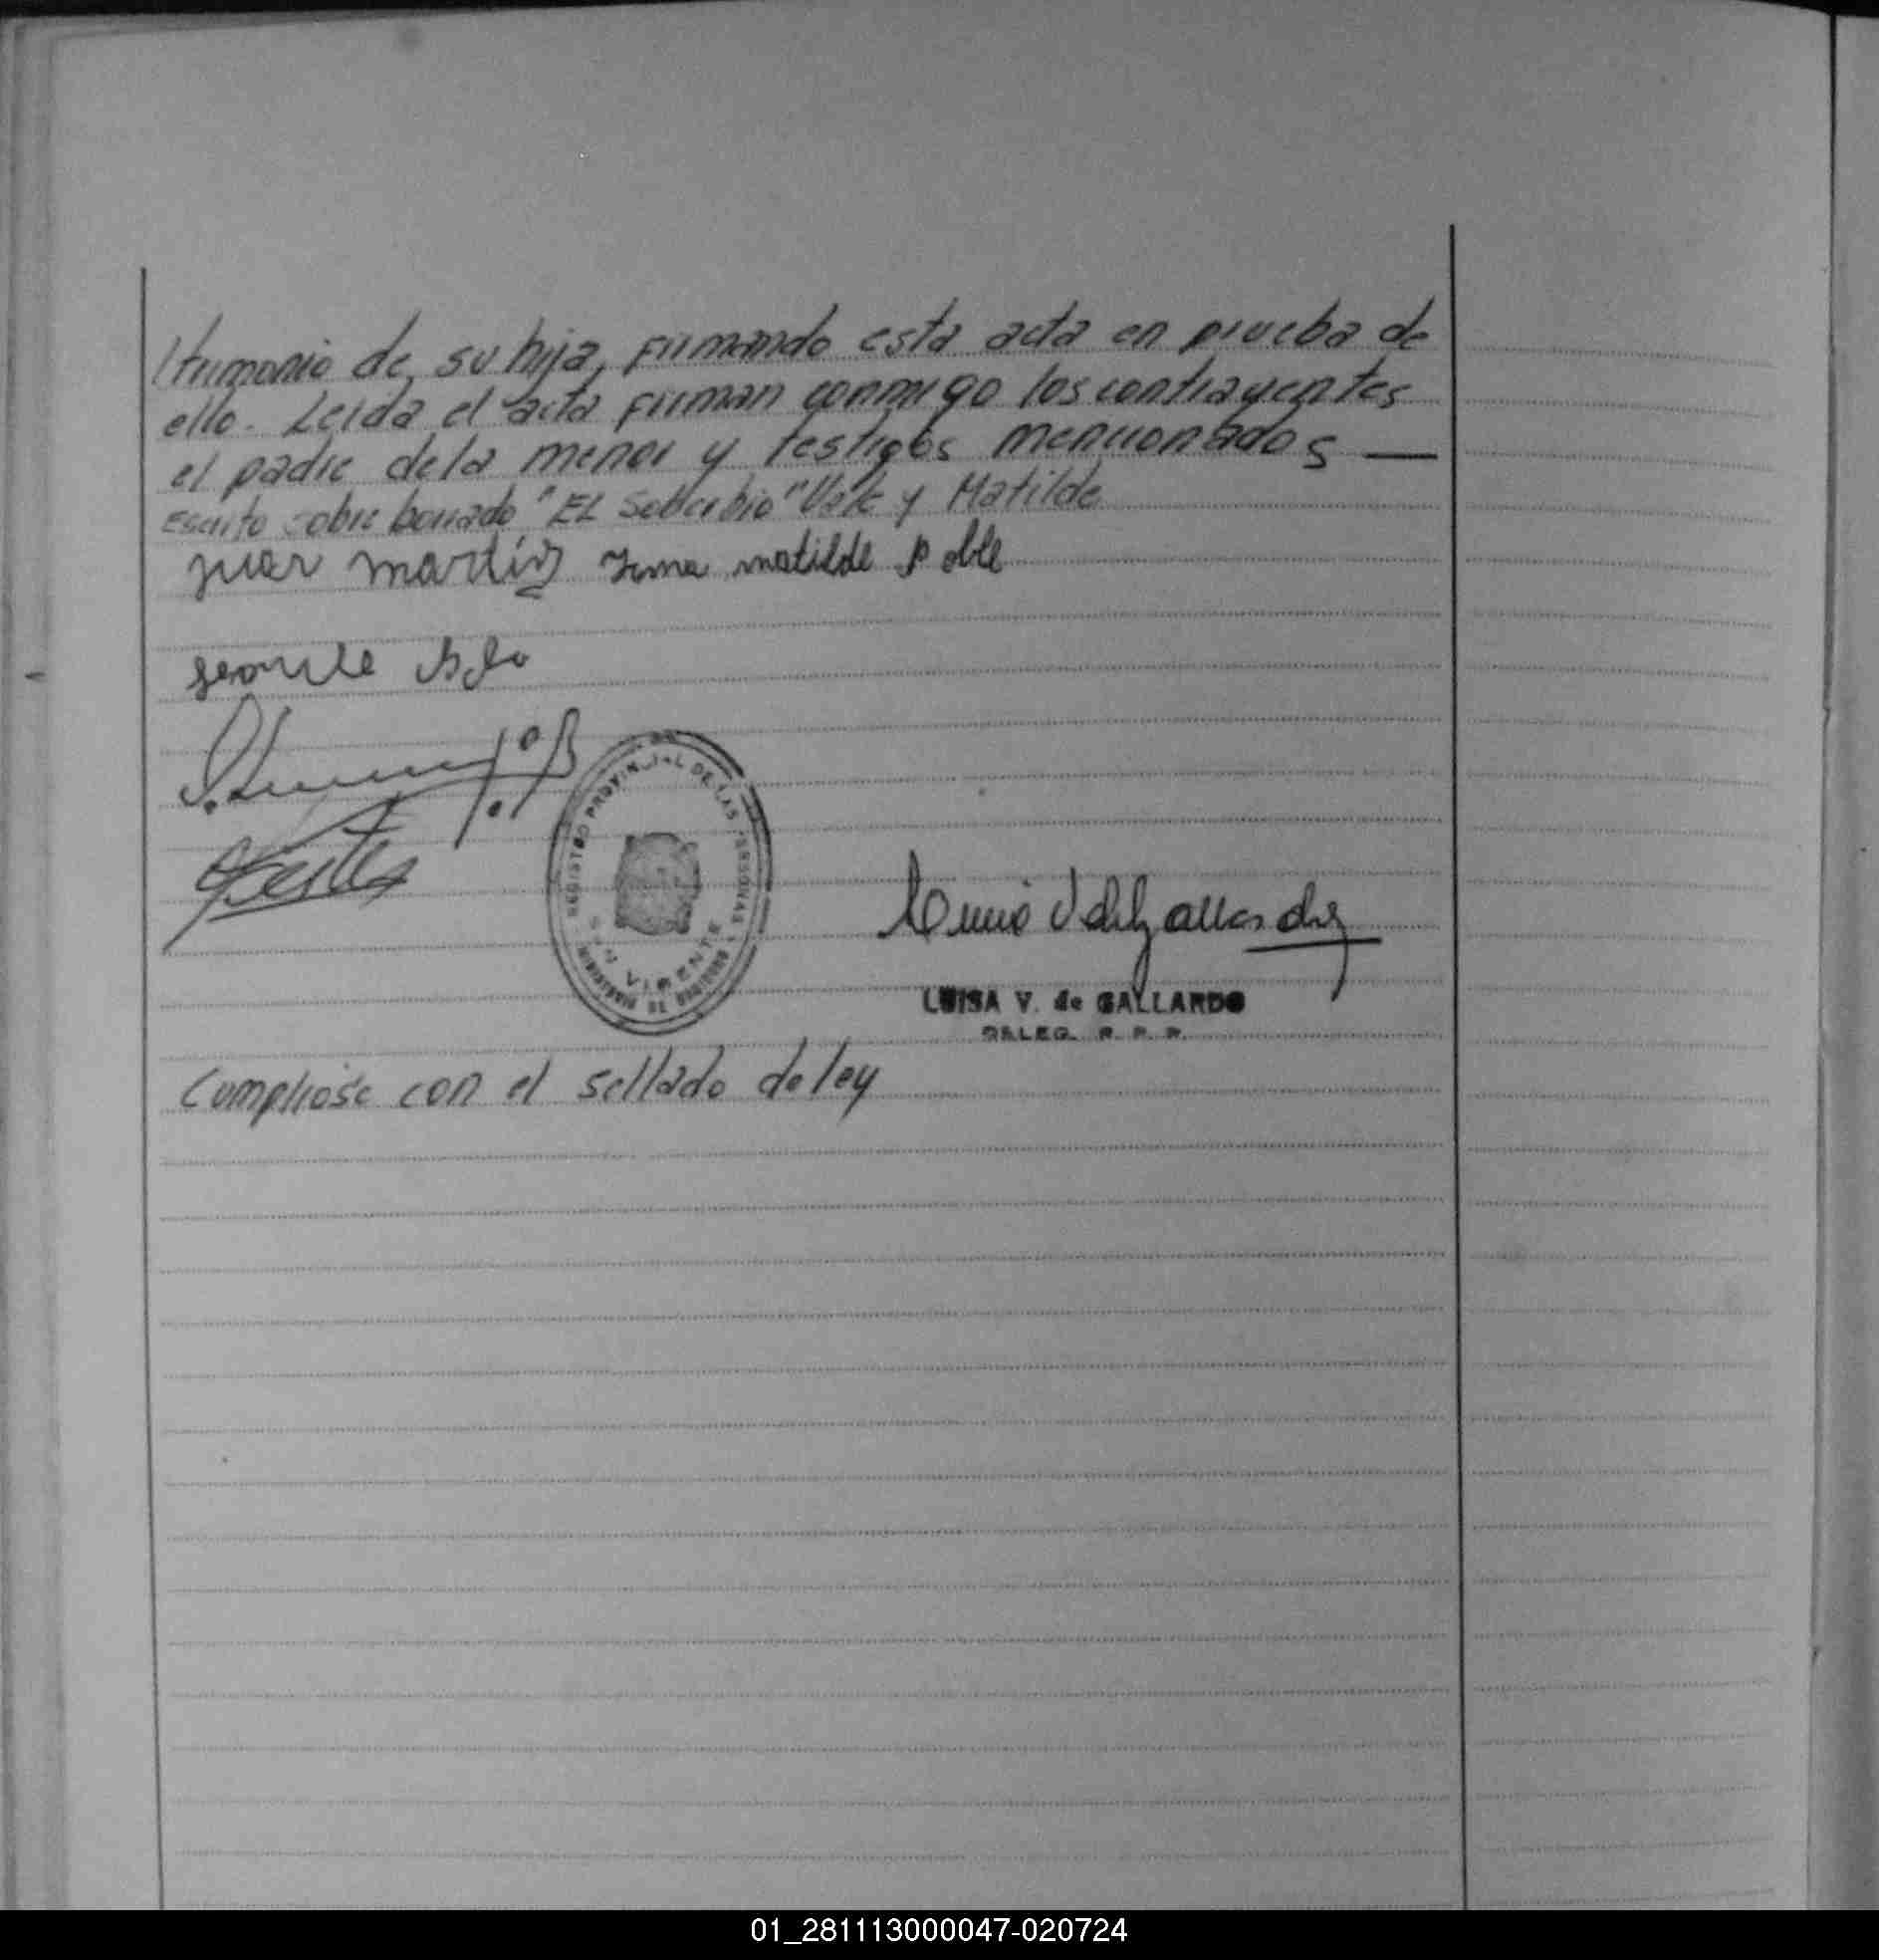 trimonio de su hija, firmando esta acta en prueba de
ello. Leida el acta firman conmigo los contrayentes
el padre dela menor y testigos mencionados —
Escrito sobre borrado "EL Soberbio" Vale y Matilde
juan martíz Irma matilde Poble
REGISTRO PROVINCIAL DE LAS PERSONAS
SAN VICENTE
MINISTERIO DE GOBIERNO
LUISA V. de GALLARDO
DELEG. R. P. P.
Cumplióse con el sellado de ley
01_281113000047-020724